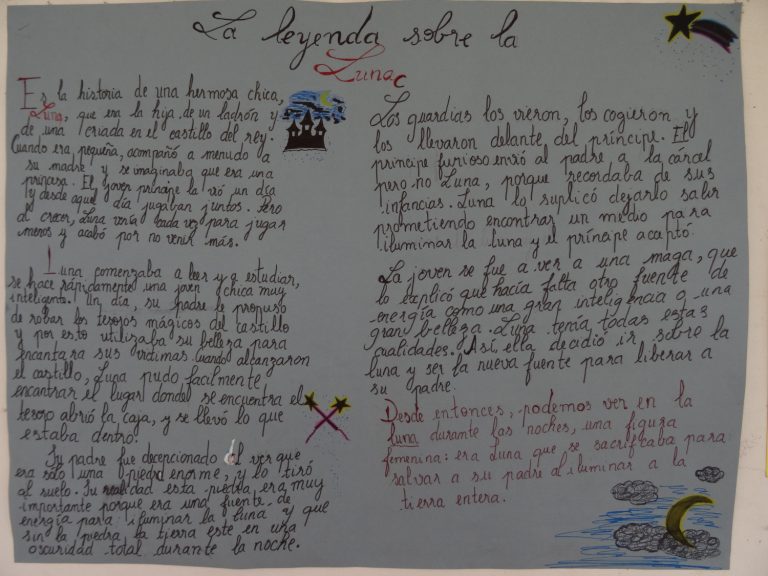 La leyenda sobre la
Luna
Es la historia de una hermosa chica,
Luna, que era la hija de un ladrón y
de una criada en el castillo del rey.
Cuando era pequeña, acompañó a menudo a
su madre y se imaginaba que era una
princesa. El joven príncipe la vió un día
y desde aquel día jugaban juntos. Pero
al crecer, Luna venía cada vez para jugar
menos y acabó por no venir más.
Luna comenzaba a leer y a estudiar,
se hace rápidamente una joven chica muy
inteligente. Un día, su padre le propuso
de robar los tesoros mágicos del castillo
y por esto utilizaba su belleza para
encantara sus víctimas. Cuando alcanzaron
el castillo, Luna pudo facilmente
encontrar el lugar donde se encuentra el
tesoro abrió la caja, y se llevó lo que
estaba dentro.
Su padre fue decepcionado al ver que
era sólo una piedra enorme, y lo tiró
al suelo. Su realidad esta piedra era muy
importante porque era una fuente de
energía para iluminar la luna y que
sin la piedra la tierra este en una
oscuridad total durante la noche.
Los guardias los vieron, los cogieron y
los llevaron delante del príncipe. El
príncipe furioso envió al padre a la cárcel
pero no Luna, porque recordaba de sus
infancias. Luna lo suplicó dejarlo salir
prometiendo encontrar un medio para
iluminar la luna y el príncipe acaptó.
La joven se fue a ver a una maga, que
lo explicó que hacía falta otro fuente de
energía como una gran inteligencia o una
gran belleza. Luna tenía todas estas
cualidades. Así, ella decidió ir sobre la
luna y ser la nueva fuente para liberar a
su padre.
Desde entonces, podemos ver en la
luna durante las noches, una figura
femenina: era Luna que se sacrificaba para
salvar a su padre al iluminar a la
tierra entera.